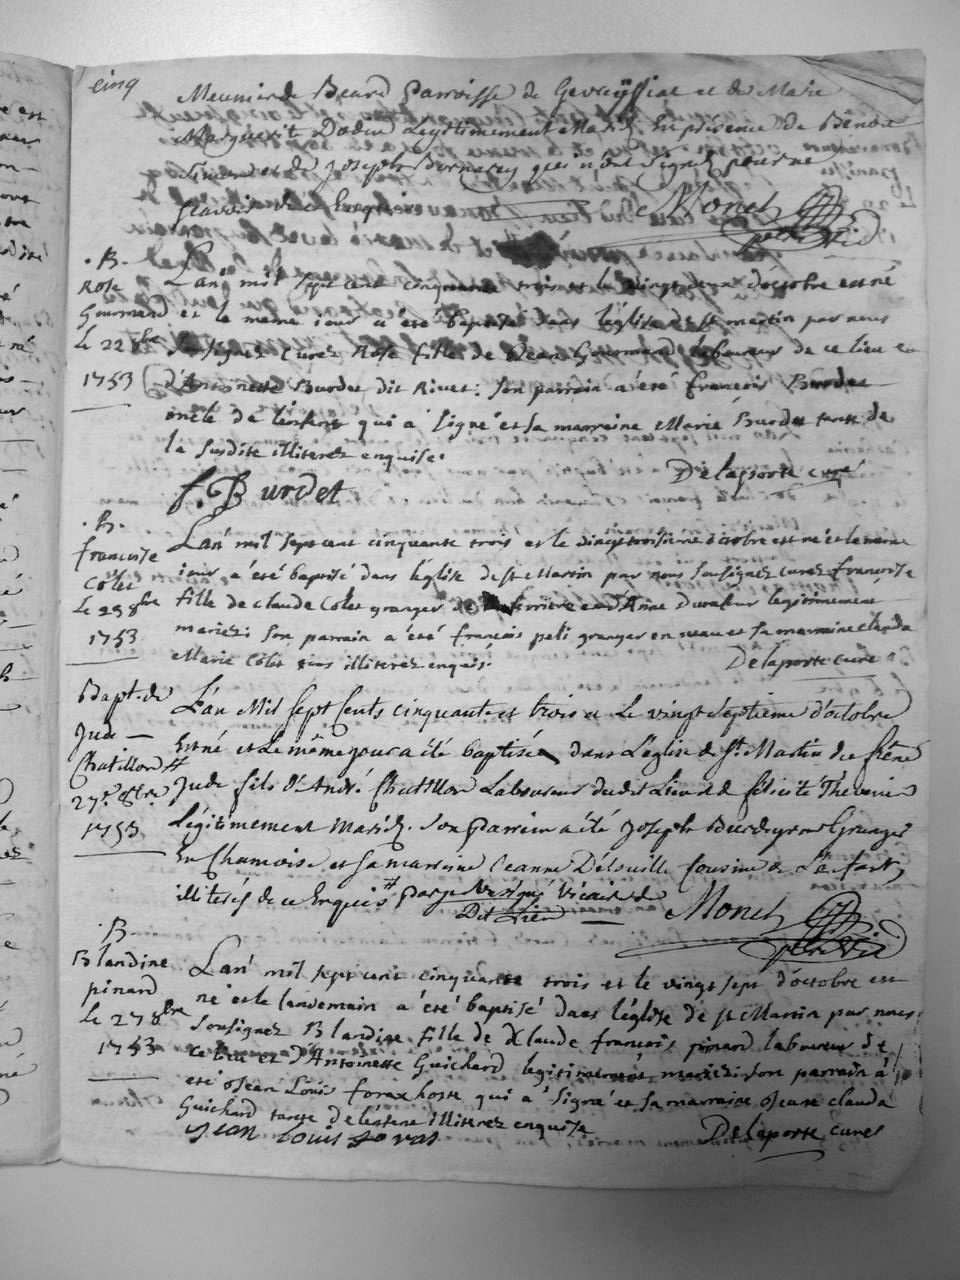 cinq
Meunier de Beard Parroisse de Gevreyssiat et de Marie
Marguerite Dodin Legitimement Mariez. En présence de Benoit
et de Joseph Bornarey qui n'ont signé pour ne
scavoir de ce Enquis Monet
. B .
Rose
Gourmend
le 22 8bre
1753
Lan mil sept cent cinquante trois et le vingt deux d'octobre est né
et le meme iour a été baptisé dans léglise de st martin par nous
soussignez curez Rose fille de Jean Gourmand laboureur de ce lieu et
d'Antoinette Burdet dit Rivet: son parrain a été francois Burdet
oncle de lenfant qui a signé et sa marraine Marie Burdet tante de
la susdite illiterez enquise.
Delaporte curé
f. Burdet
. B .
francoise
Colet
le 23 8bre
1753
Lan mil sept cent cinquante trois et le vingt troisième d'ctobre est né et le meme
iour a été baptisé dans léglise de st Martin par nous soussignez curez francoise
fille de claude Colet granger ferriere et d'Anne Durafour legitimement
mariez: son parrain a été francois peli granger en et sa marraine clauda
Marie Colet illiterez enquis.
Delaporte curé
Bapt. de
Jude
Chatillon
27e 8bre
1753
L'an Mil sept Cents cinquante et trois et Le vingt septieme d'octobre
Est né et Le même jour a été baptisé dans L'église de St Martin du frêne
Jude fils d'André Chatillon Laboureur dudit Lieu et de felicité Thevenin
Légitimement Mariez. Son Parrain a été Joseph Burdeyron Granger
En Chamoise et sa marraine Jeanne Deloville Cousine de L'enfant
illiterés de ce Enquis par je soussigné Vicaire du
Dit Lieu Monet
. B .
Blandine
pinard
le 27 8bre
1753
Lan mil sept cent cinquante trois et le vingt sept d'octobre est
né et le landemain a été baptisé dans léglise de st Martin par nous
soussignez Blandine fille de Claude francois pinard laboureur de
ce lieu et d'Antoinette Guichard legitimement mariez: son parrain a
été Jean Louis foraz hoste qui a signé et sa marraine Jeane clauda
Guichard tante de lenfant illiterez enquise
Jean Louis foras
Delaporte curez